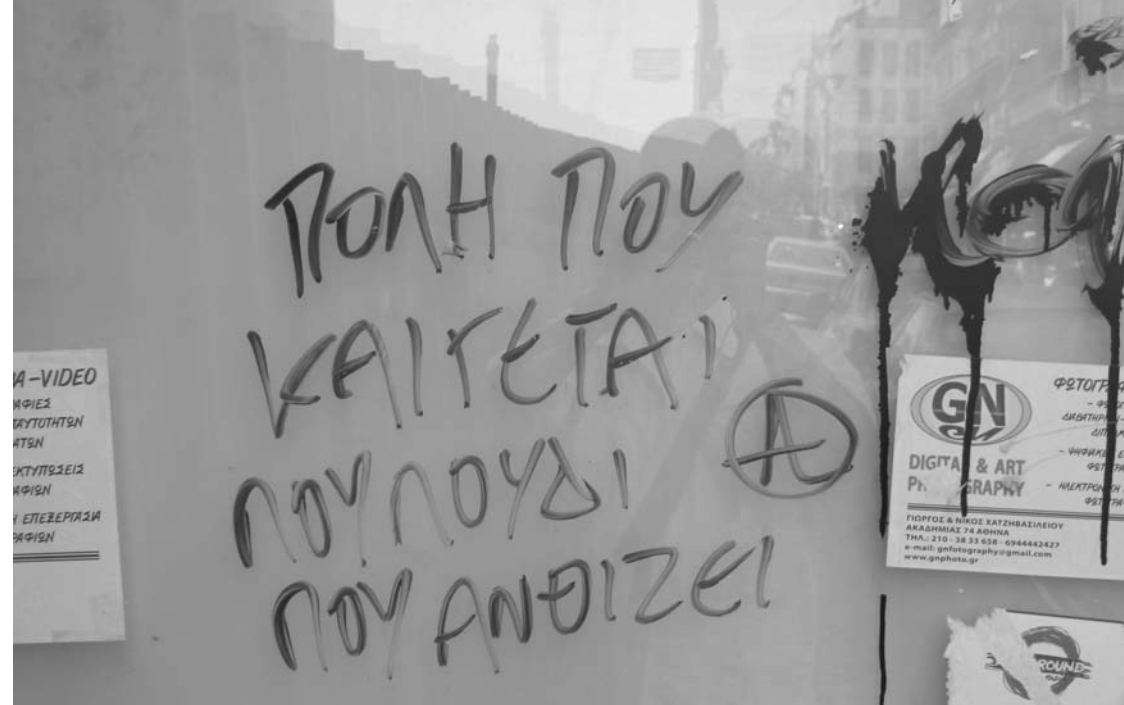 ΠΟΛΗ ΠΟΥ
ΚΑΙΓΕΤΑΙ
ΛΟΥΛΟΥΔΙ
ΠΟΥ ΑΝΘΙΖΕΙ
Α
-VIDEO
ΤΑΥΤΟΤΗΤΩΝ
ΕΚΤΥΠΩΣΕΙΣ
ΕΠΕΞΕΡΓΑΣΙΑ
GN
DIGITAL & ART
PHOTOGRAPHY
ΓΙΩΡΓΟΣ & ΝΙΚΟΣ ΧΑΤΖΗΒΑΣΙΛΕΙΟΥ
ΑΚΑΔΗΜΙΑΣ 74 ΑΘΗΝΑ
ΤΗΛ.: 210 - 38 33 658 - 6944442427
e-mail: gnfotography@gmail.com
www.gnphoto.gr